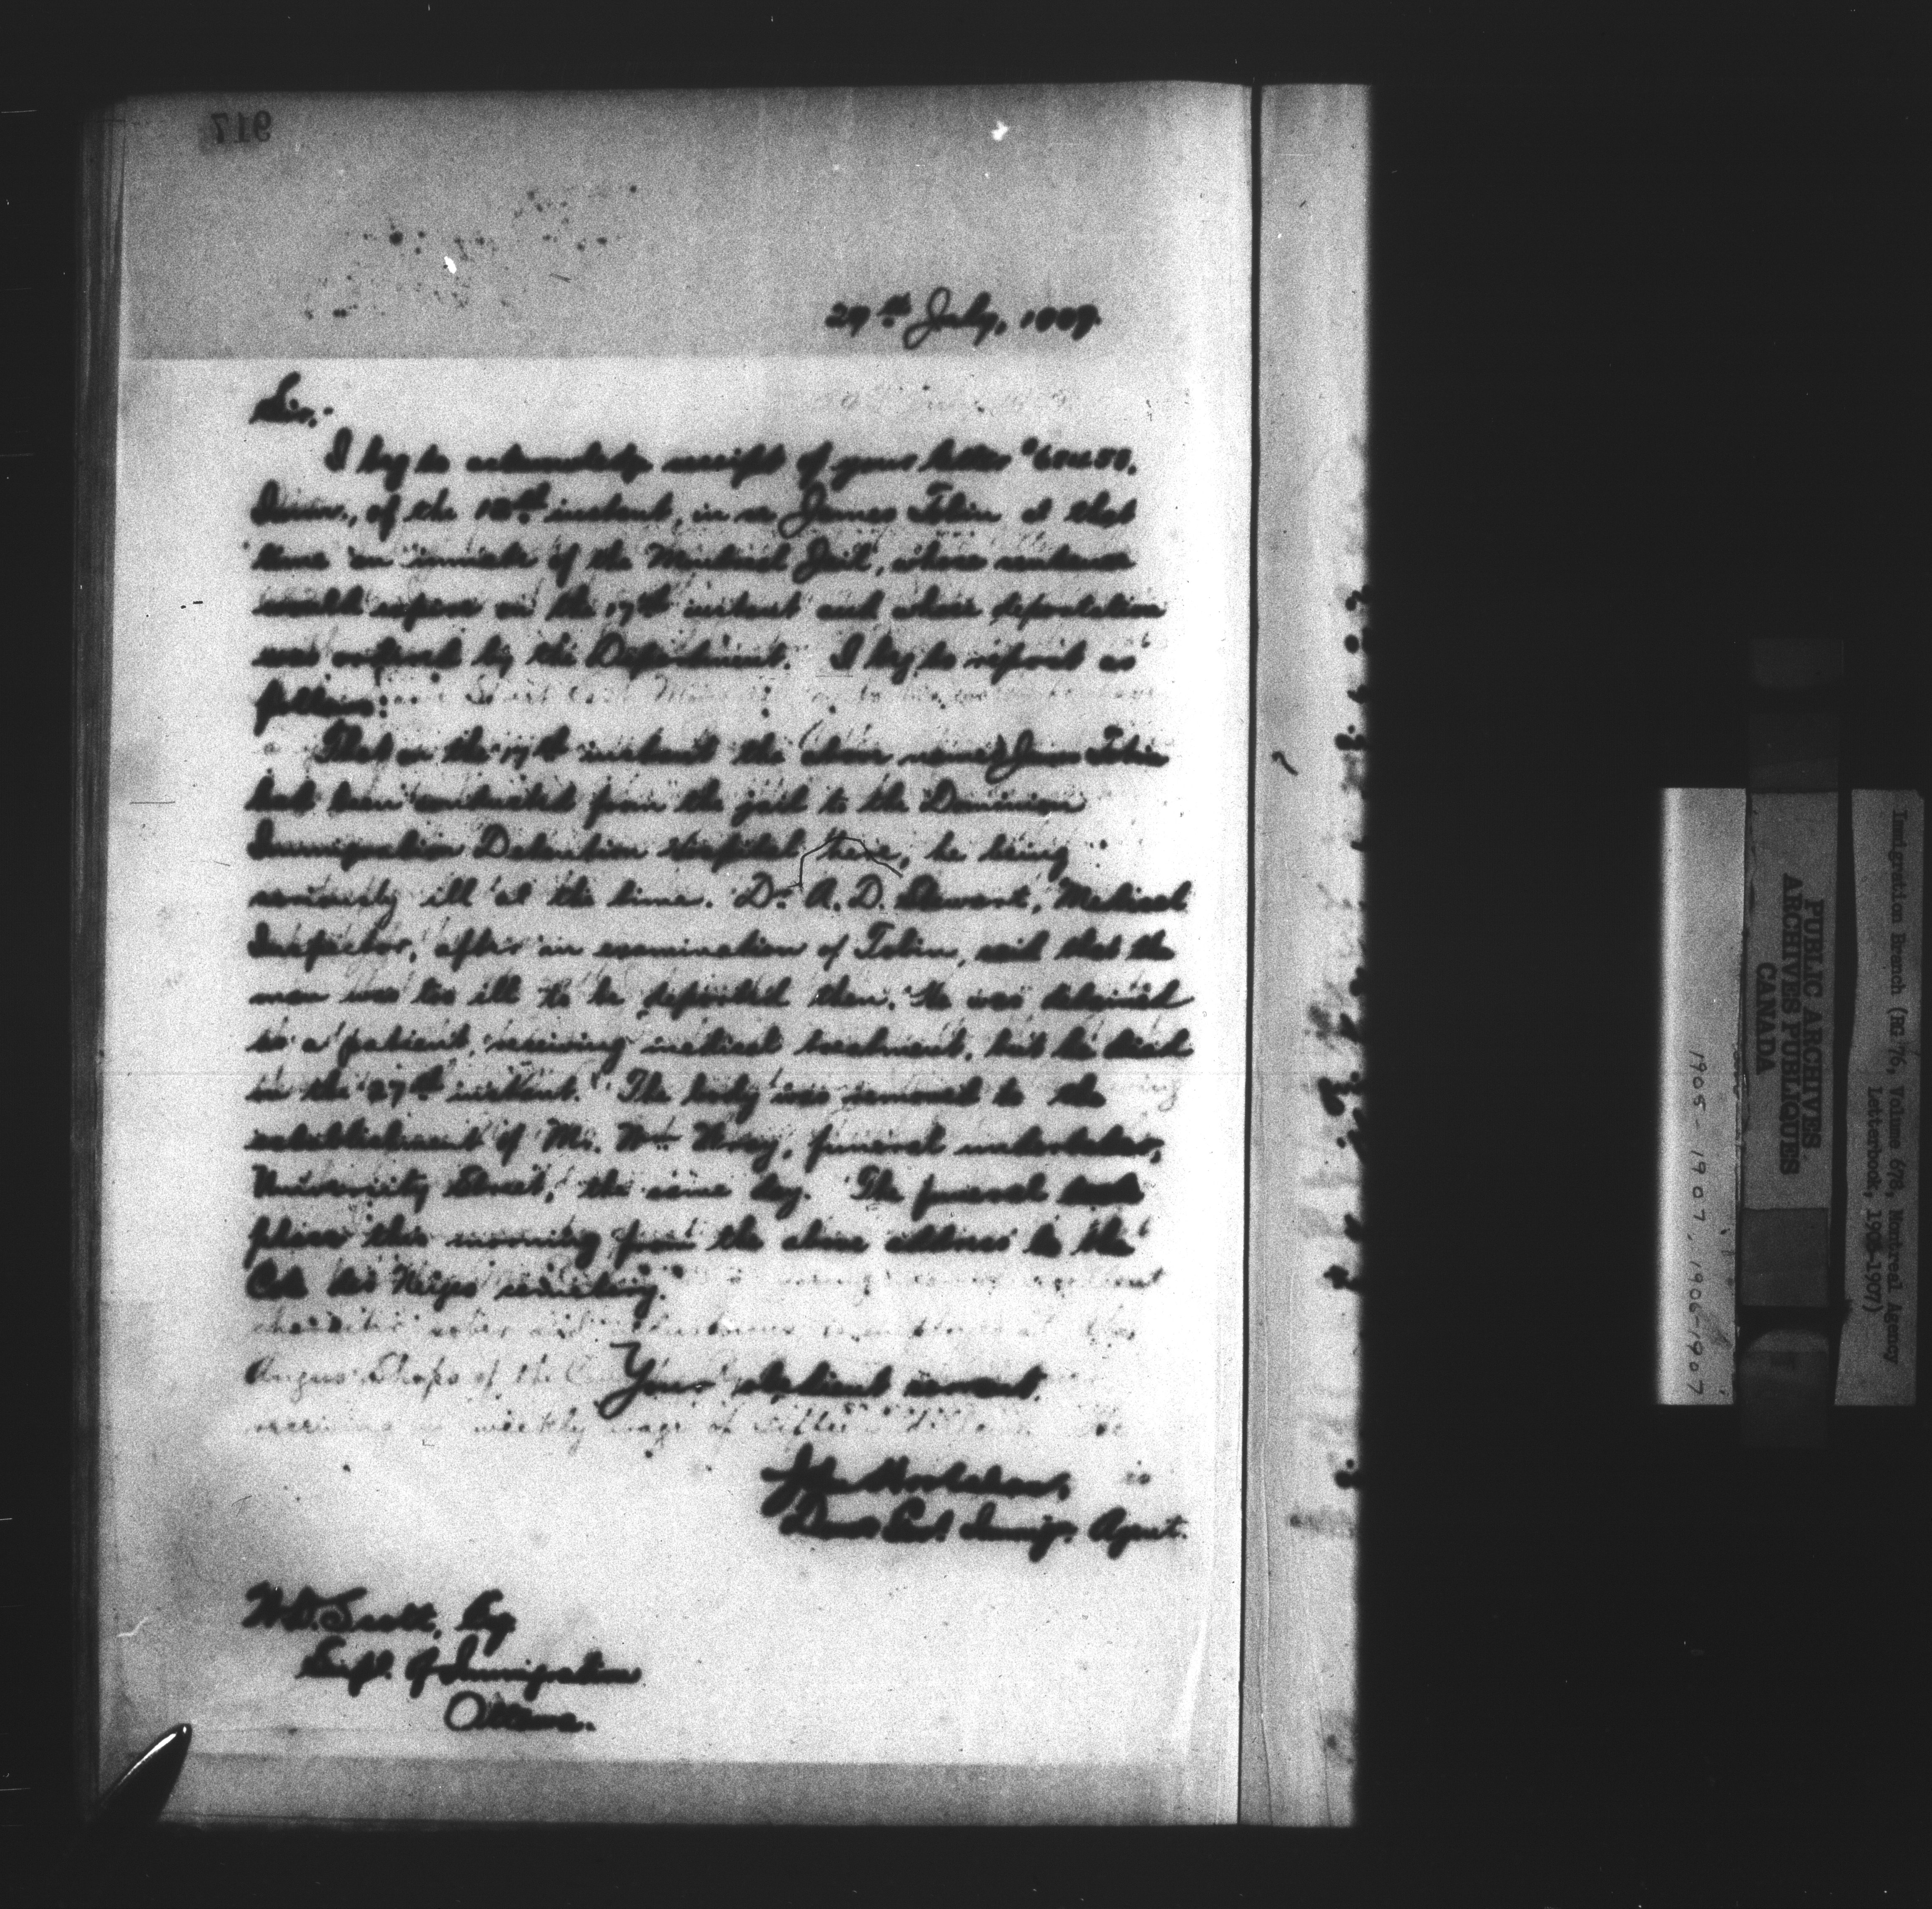 917
29th July, 1907.
Sir:
I beg to acknowledge receipt of your letter
of the 12th instant, in re James Tobin at that
time an inmate of the Montreal Jail, whose sentence
would expire on the 17th instant and whose deportation
was ordered by the Department. I beg to report as
follows:
That on the 17th instant the above named James Tobin
had been conducted from the jail to the Dominion
Immigration Detention Hospital here, he being
seriously ill at the time. Dr. A. D. Stewart, Medical
Inspector, after an examination of Tobin, said that the
man was too ill to be deported then. He was detained
as a patient, receiving medical treatment, but he died
on the 27th instant. The body was removed to the
establishment of Mr. Wm. Wray, funeral undertaker,
University Street, the same day. The funeral took
place this morning from the above address to the
Cote des Neiges cemetery.
Angus Shops of the
Your obedient servant,
weekly wage of
John Hoolahan,
Dom. Govt. Immign. Agent.
W.D. Scott, Esq.
Supt. of Immigration
Ottawa.
Immigration Branch (RG 76, Volume 678, Montreal Agency
Letterbook, 1905-1907)
PUBLIC ARCHIVES
ARCHIVES PUBLIQUES
CANADA
1905-1907, 1906-1907